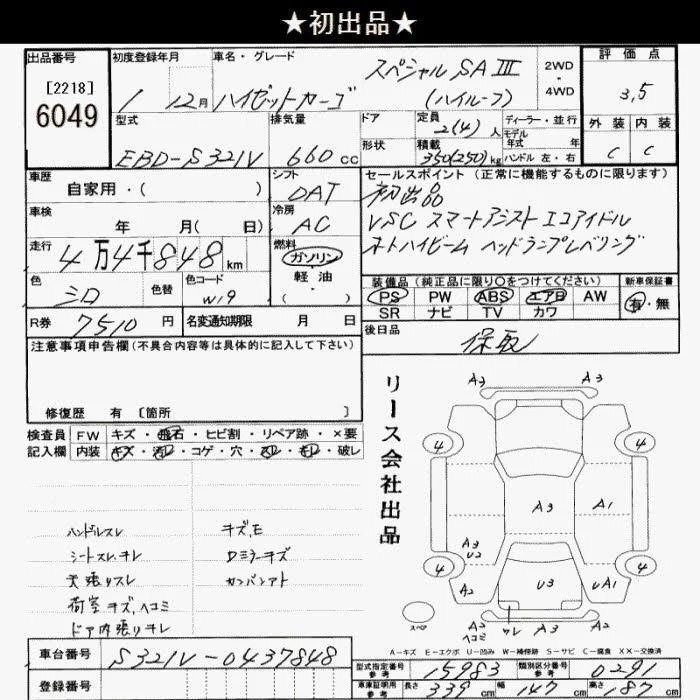 ★初出品★
出品番号
[2218]
6049
初度登録年月
1 12月
車名・グレード
ハイゼットカーゴ スペシャル SAⅢ (ハイルーフ)
2WD
・
4WD
評価点
3,5
外装 内装
C C
型式
EBD-S321V
排気量
660 cc
ドア
形状
定員
2(4)人
積載
350(250)kg
ディーラー・並行
モデル
年式 年
ハンドル 左・右
車歴
自家用・( )
シフト
DAT
車検
年 月( 日)
冷房
AC
走行
4万4千848km
燃料
ガソリン
軽・油
( )
色
シロ
色替
色コード
W19
R券
7510円
名変通知期限 月 日
セールスポイント (正常に機能するものに限ります)
初出品
VSC スマートアシスト エコアイドル
オートハイビーム ヘッドランプレベリング
装備品 (純正品に限り○をつけてください)
新車保証書
PS PW ABS エアB AW
有・無
SR ナビ TV カワ
後日品
保取
注意事項申告欄 (不具合内容等は具体的に記入して下さい)
修復歴 有 〔箇所 〕
検査員
記入欄
FW キズ・飛石・ヒビ割・リペア跡・×要
内装 キズ・汚レ・コゲ・穴・スレ・モレ・破レ
ハンドルスレ
シートスレ、チレ
天張りスレ
荷室キズ、ヘコミ
ドア内張りキレ
キズ、E
Dミラーキズ
カンバンアト
リース会社出品
A3 A3
4 4
A3 A1
A3
U2
4 4
A2 U3 UA1
スペア
A2
ヘコミ
ワレ A3 A2
A-キズ E-エクボ U-凹み W-補修跡 S-サビ C-腐食 XX-交換済
車台番号
S321V-0437848
登録番号
型式指定番号
参考
15983
類別区分番号
参考
0291
車庫証明用
参考
長さ 339cm
幅 147cm
高さ 187cm